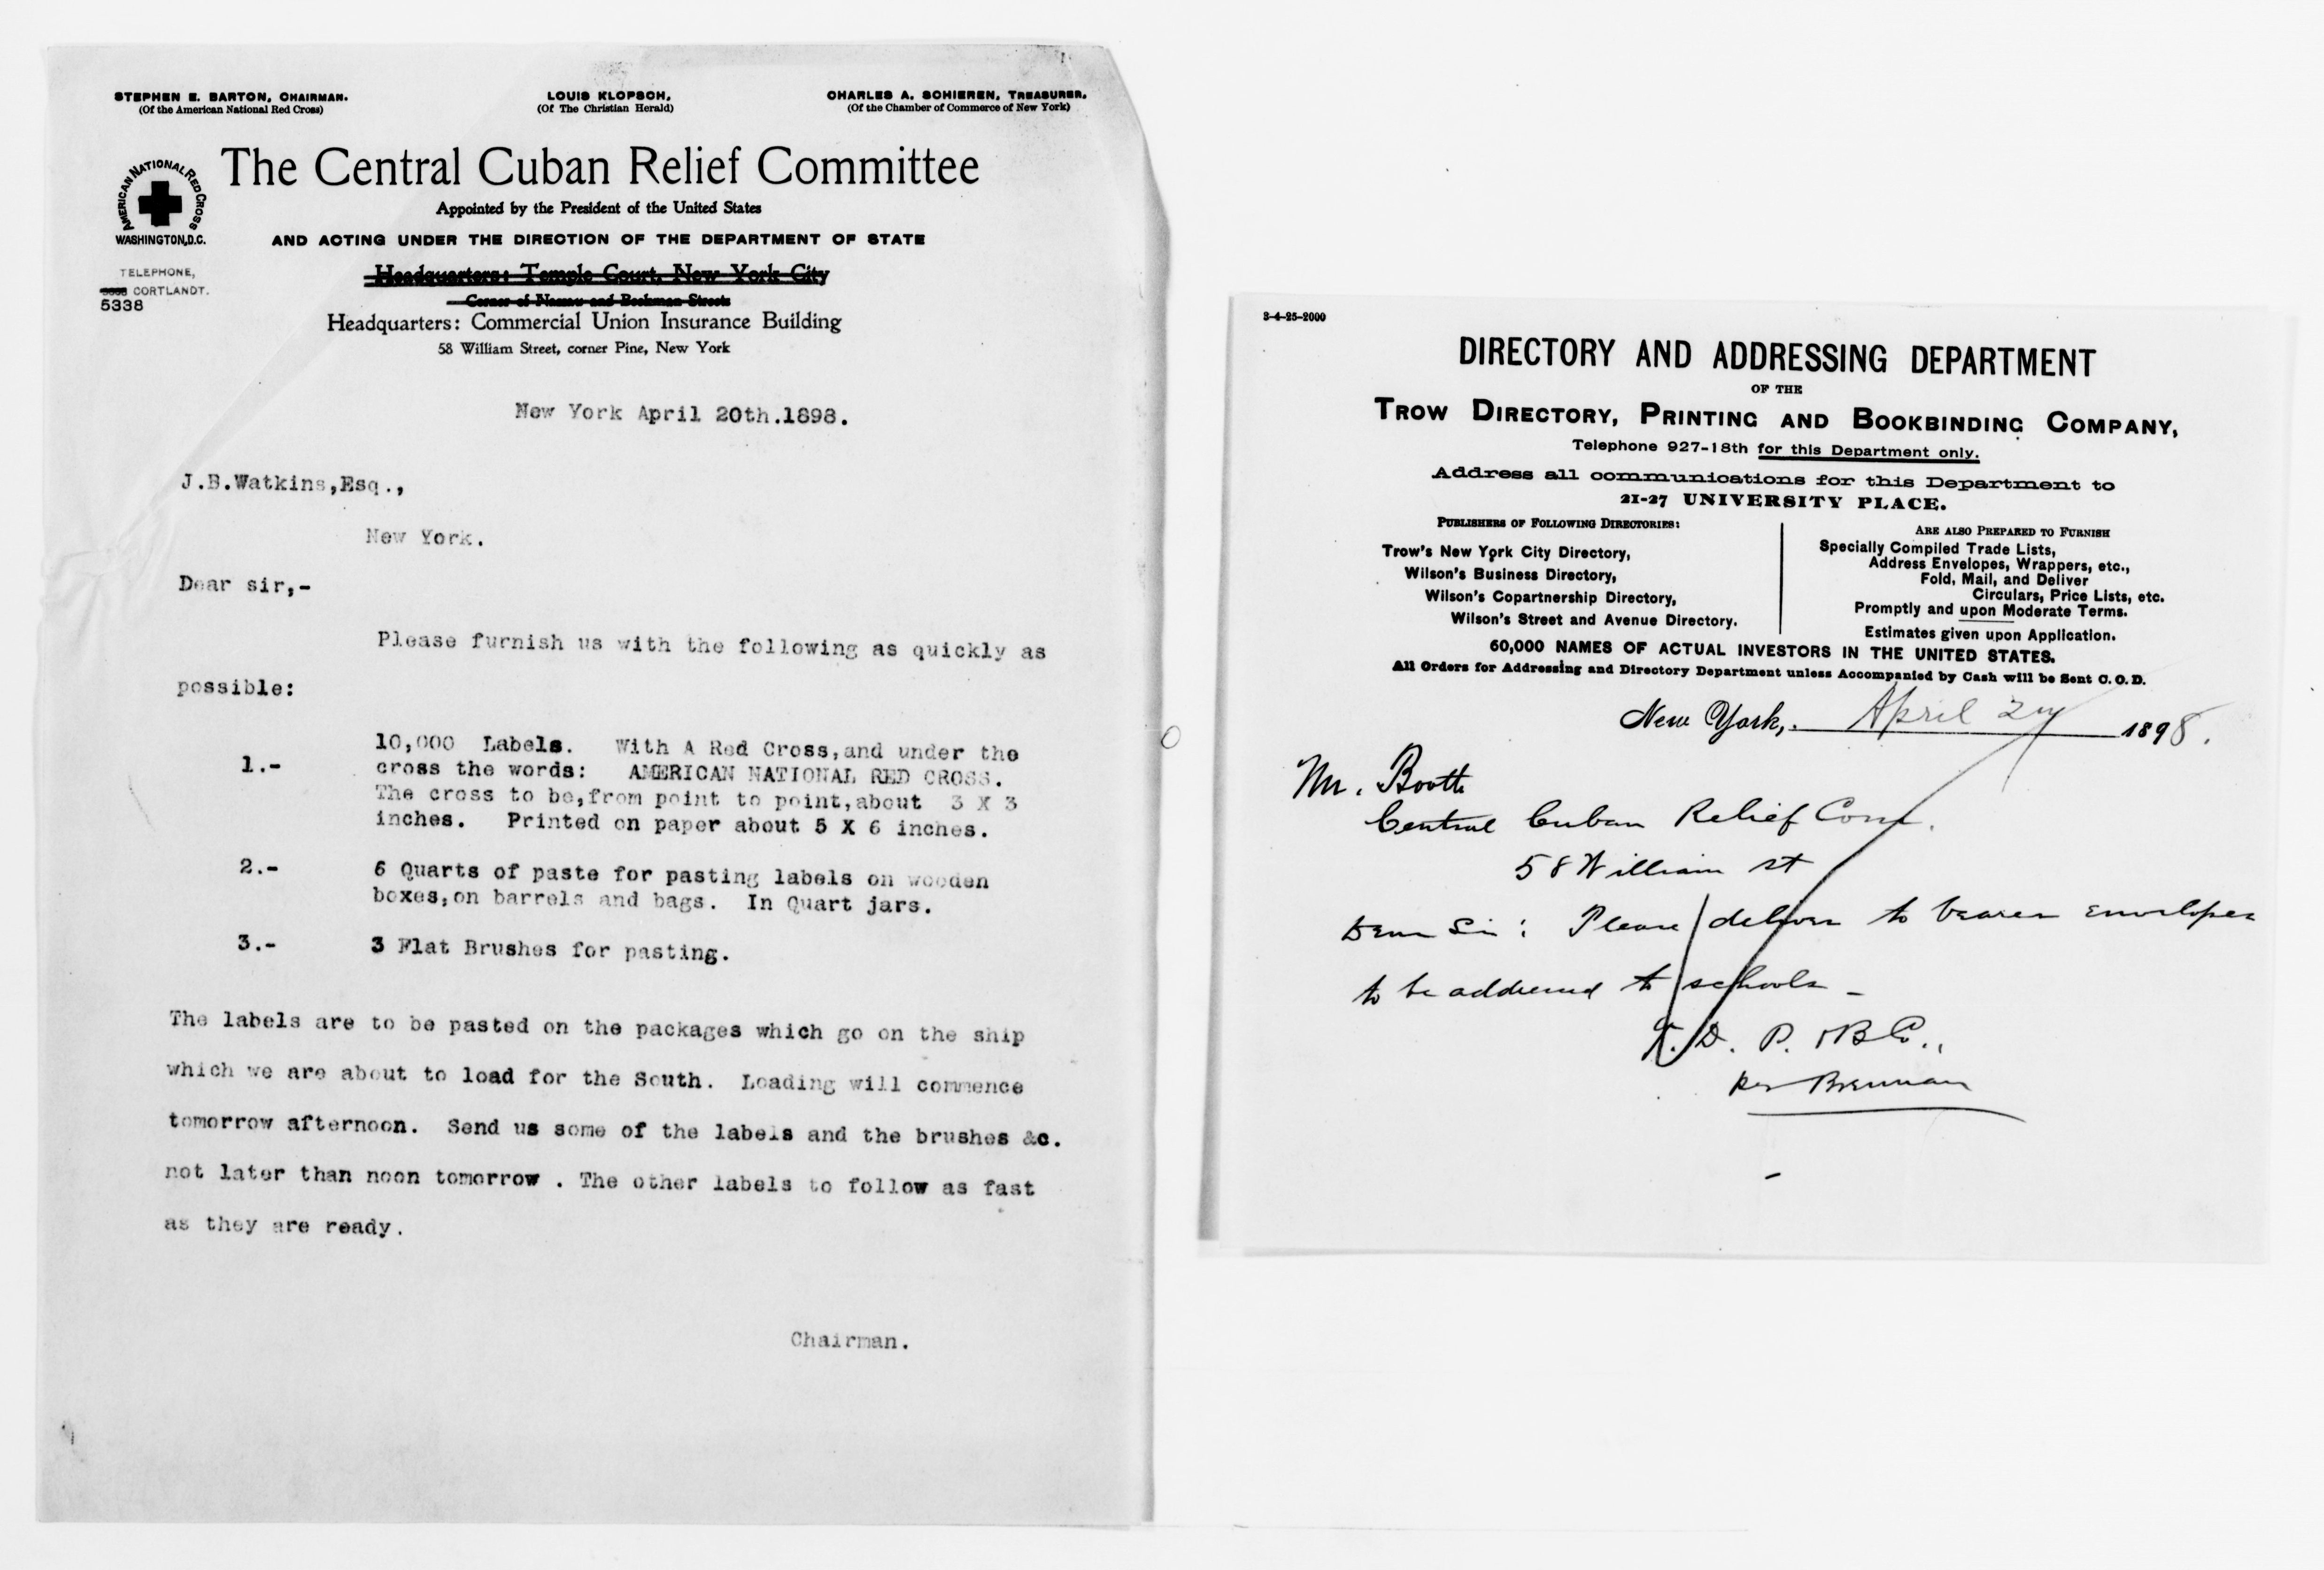 STEPHEN E. BARTON, CHAIRMAN.
(Of the American National Red Cross)
LOUIS KLOPSCH,
(Of The Christian Herald)
CHARLES A. SCHIEREN, TREASURER.
(Of the Chamber of Commerce of New York)
The Central Cuban Relief Committee
AMERICAN NATIONAL RED CROSS
WASHINGTON, D.C.
Appointed by the President of the United States
AND ACTING UNDER THE DIRECTION OF THE DEPARTMENT OF STATE
TELEPHONE,
CORTLANDT.
5338
Headquarters: Temple Court, New York City
Corner of Nassau and Beekman Streets
Headquarters: Commercial Union Insurance Building
58 William Street, corner Pine, New York
New York April 20th.1898.
J.B.Watkins,Esq.,
New York.
Dear sir,-
Please furnish us with the following as quickly as
possible:
1.- 10,000 Labels. With A Red Cross,and under the
cross the words: AMERICAN NATIONAL RED CROSS.
The cross to be,from point to point,about 3 X 3
inches. Printed on paper about 5 X 6 inches.
2.- 6 Quarts of paste for pasting labels on wooden
boxes,on barrels and bags. In Quart jars.
3.- 3 Flat Brushes for pasting.
The labels are to be pasted on the packages which go on the ship
which we are about to load for the South. Loading will commence
tomorrow afternoon. Send us some of the labels and the brushes &c.
not later than noon tomorrow . The other labels to follow as fast
as they are ready.
Chairman.
3-4-25-2000
DIRECTORY AND ADDRESSING DEPARTMENT
OF THE
TROW DIRECTORY, PRINTING AND BOOKBINDING COMPANY,
Telephone 927-18th for this Department only.
Address all communications for this Department to
21-27 UNIVERSITY PLACE.
PUBLISHERS OF FOLLOWING DIRECTORIES:
Trow's New York City Directory,
Wilson's Business Directory,
Wilson's Copartnership Directory,
Wilson's Street and Avenue Directory.
ARE ALSO PREPARED TO FURNISH
Specially Compiled Trade Lists,
Address Envelopes, Wrappers, etc.,
Fold, Mail, and Deliver
Circulars, Price Lists, etc.
Promptly and upon Moderate Terms.
Estimates given upon Application.
60,000 NAMES OF ACTUAL INVESTORS IN THE UNITED STATES.
All Orders for Addressing and Directory Department unless Accompanied by Cash will be Sent C.O.D.
New York, April 1898.
Mr. Booth
Central Cuban Relief Com.
58 William st
Dear Sir: Please deliver to bearer envelopes
to be addressed to schools -
T. D. P. & B Co.,
per Brennan